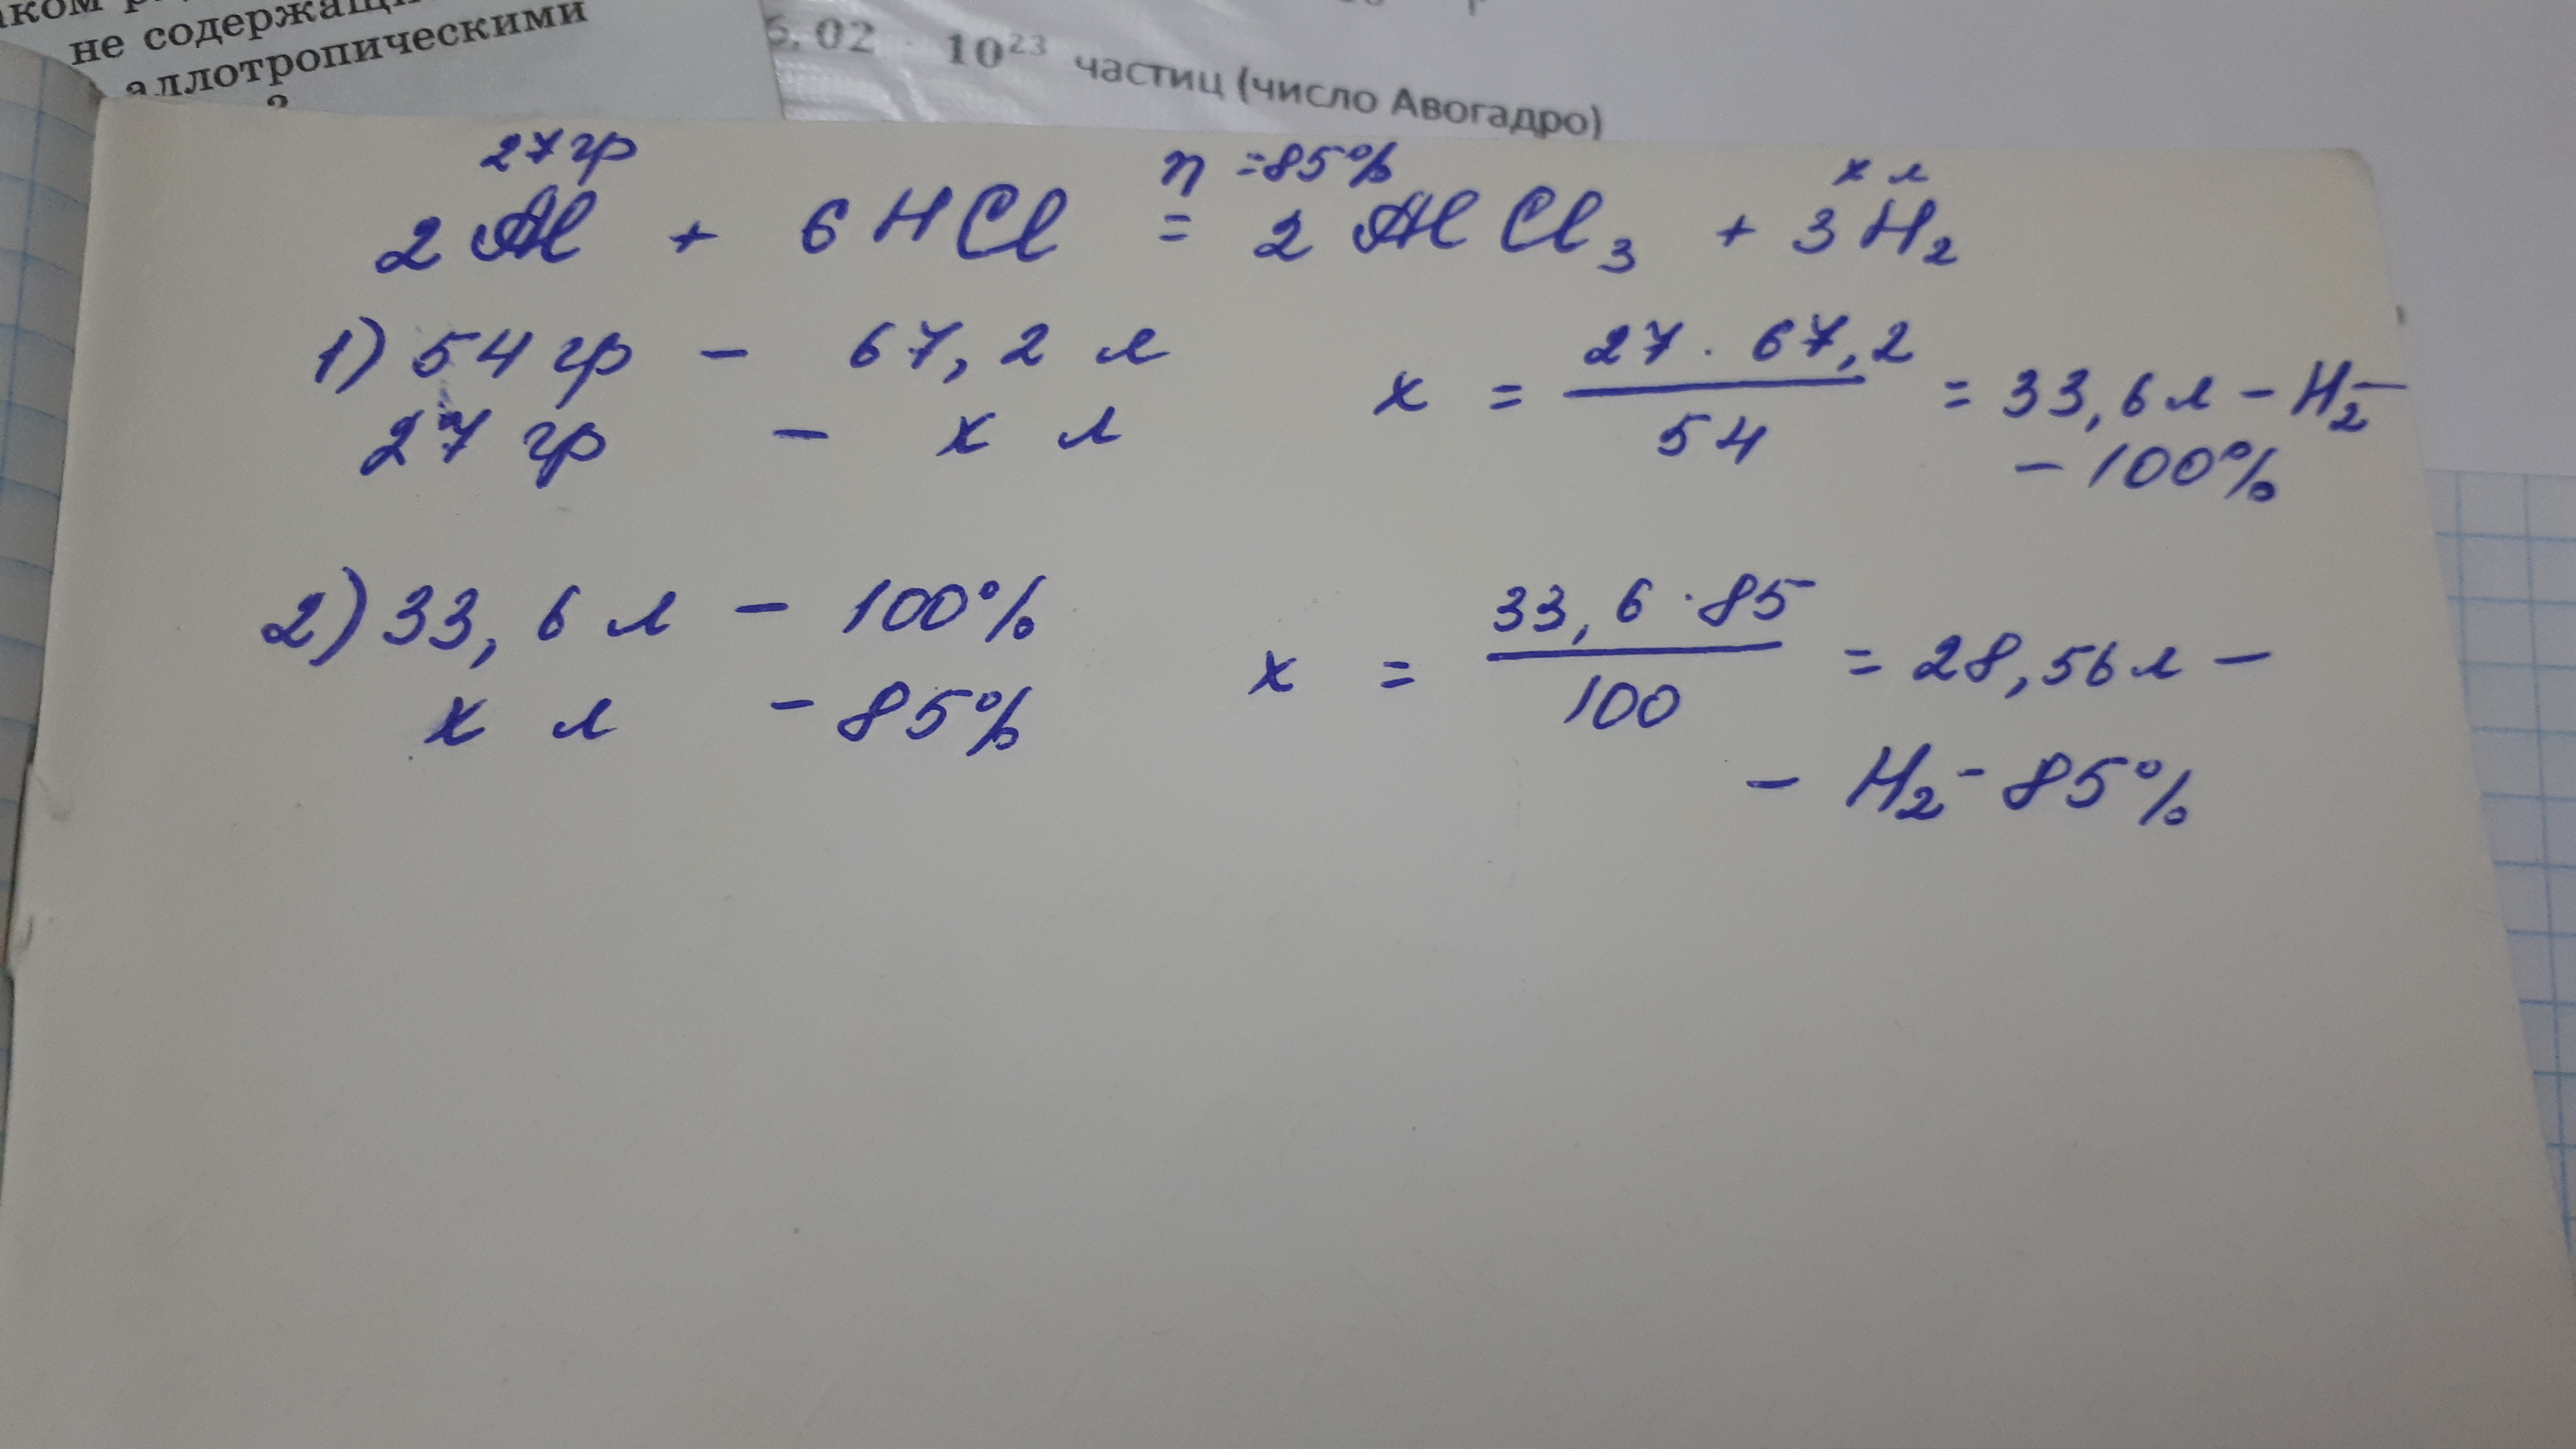 не содержащи
аллотропическими
6,02 · 10²³ частиц (число Авогадро)
27 гр η = 85% x л
2 Al + 6 HCl = 2 AlCl₃ + 3 H₂
1) 54 гр – 67,2 л x = 27 · 67,2 / 54 = 33,6 л – H₂ –
27 гр – x л – 100%
2) 33,6 л – 100% x = 33,6 · 85 / 100 = 28,56 л –
x л – 85%
– H₂ – 85%